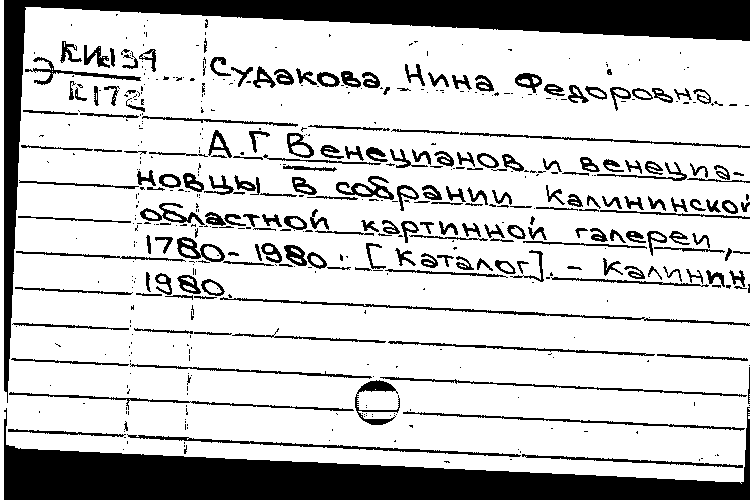 Э КИ194
К172
Судакова, Нина Федоровна.
А.Г. Венецианов и венециа-
новцы в собрании Калининской
областной картинной галереи,
1780-1980: [Каталог]. - Калинин,
1980.